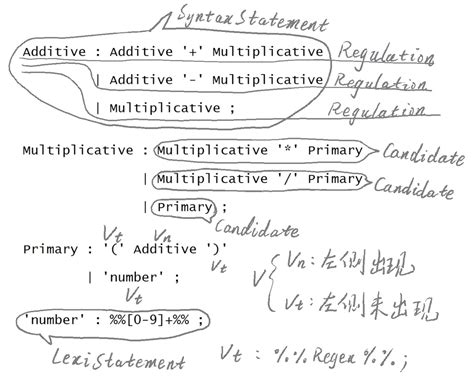 SyntaxStatement
Additive : Additive '+' Multiplicative Regulation
| Additive '-' Multiplicative Regulation
| Multiplicative ; Regulation
Multiplicative : Multiplicative '*' Primary Candidate
| Multiplicative '/' Primary Candidate
| Primary ;
Vt Vn Candidate
Primary : '(' Additive ')' Vt
| 'number' ;
Vt
V { Vn : 左侧出现
Vt : 左侧未出现
'number' : %%[0-9]+%% ;
LexiStatement Vt : %%Regex%% ;